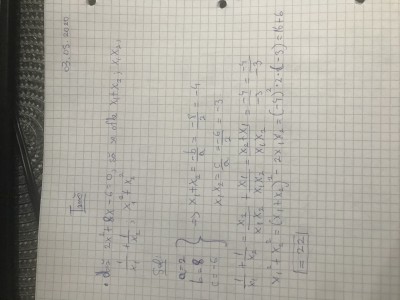 03.05.2020
Temă
• d = 2x² + 8x - 6 = 0, să se afle x₁ + x₂, x₁x₂,
1/x₁ + 1/x₂, x₁² + x₂²
a = 2
b = 8
c = -6
⇒ x₁ + x₂ = -b/a = -8/2 = -4
x₁x₂ = c/a = -6/2 = -3
1/x₁ + 1/x₂ = x₂/x₁x₂ + x₁/x₁x₂ = x₂+x₁/x₁x₂ = -4/-3 = -4/-3
x₁² + x₂² = (x₁ + x₂)² - 2x₁x₂ = (-4)² - 2·(-3) = 16 + 6
= 22